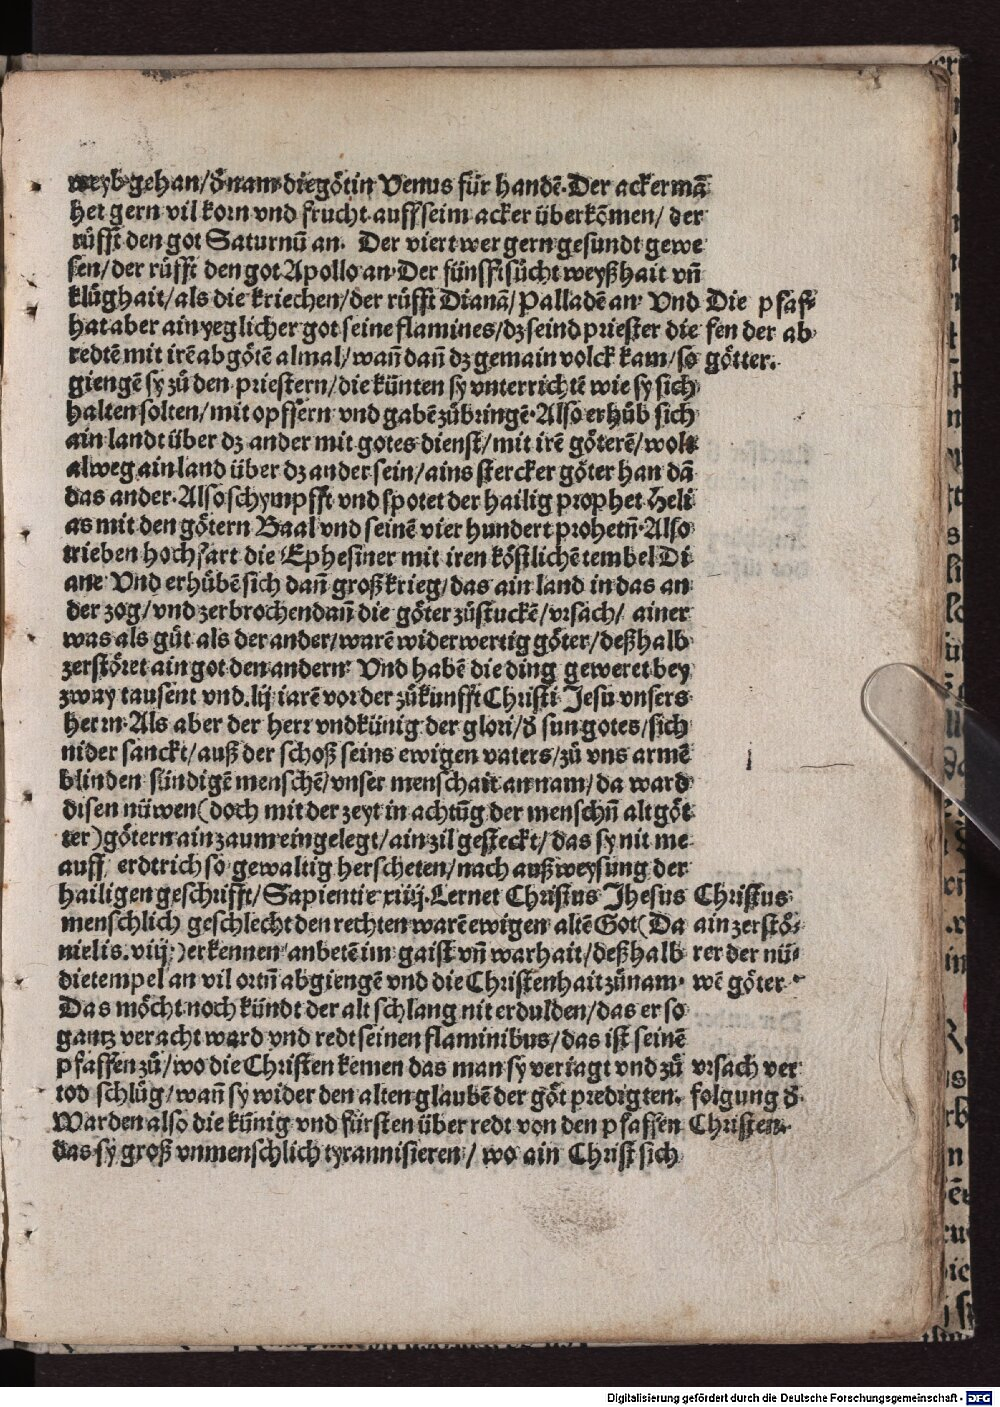 weyb gehan/ d̄ nam die götin Venus für handē. Der ackermā
het gern vil korn vnd frucht auff seim acker überkōmen/ der
rüfft den got Saturnū an. Der viert wer gern gesundt gewe
sen/ der rüfft den got Apollo an. Der fünfft sücht weyßhait vn̄
klüghait/ als die kriechen/ der rüfft Dianā/ Palladē an. Vnd
hat aber ain yeglicher got seine flamines/ dz seind priester die
redtē mit irē abgötē almal/ wan̄ dan̄ dz gemain volck kam/ so
Die pfaf-
fen der ab
götter.
giengē sy zů den priestern/ die künten sy vnterrichtē wie sy sich
halten solten/ mit opffern vnd gabē zůbringē. Also erhůb sich
ain landt über dz ander mit gotes dienst/ mit irē göterē/ wolt
alweg ain land über dz ander sein/ ains stercker göter han dā
das ander. Also schympfft vnd spotet der hailig prophet Heli
as mit den götern Baal vnd seinē vier hundert prohetn̄. Also
trieben hochfart die Ephesiner mit iren köstlichē tembel Di
ane Vnd erhůbē sich dan̄ groß krieg/ das ain land in das an
der zog/ vnd zerbrochen dan̄ die göter zůstuckē/ vrsach/ ainer
was als gůt als der ander/ warē widerwertig göter/ deßhalb
zerstöret ain got den andern. Vnd habē die ding geweret bey
zway tausent vnd .lij iarē vor der zůkunfft Christi Jesu vnsers
herrn. Als aber der herr vnd künig der glori/ d̄ sun gotes/ sich
nider sanckt/ auß der schoß seins ewigen vaters/ zů vns armē
blinden sündigē menschē/ vnser menschait an nam/ da ward
disen nüwen (doch mit der zeyt in achtūg der menschn̄ alt göt
ter) götern ain zaum eingelegt/ ain zil gesteckt/ das sy nit me
auff erdtrich so gewaltig herscheten/ nach außweysung der
hailigen geschrifft/ Sapientie xiiij. Lernet Christus Jhesus
menschlich geschlecht den rechten warē ewigen altē Got (Da
nielis. viij.) erkennen anbetē im gaist vn̄ warhait/ deßhalb
die tempel an vil ortn̄ abgiengē vnd die Christenhait zůnam.
Christus
ain zerstö-
rer der nü-
wē göter
Das möcht noch kündt der alt schlang nit erdulden/ das er so
gantz veracht ward vnd redt seinen flaminibus/ das ist seinē
pfaffen zů/ wo die Christen kemen das man sy veriagt vnd zů
tod schlůg/ wan̄ sy wider den alten glaubē der göt predigten.
Warden also die künig vnd fürsten über redt von den pfaffen
vrsach ver
folgung d̄
Christen.
das sy groß vnmenschlich tyrannisieren/ wo ain Christ sich
Digitalisierung gefördert durch die Deutsche Forschungsgemeinschaft - DFG